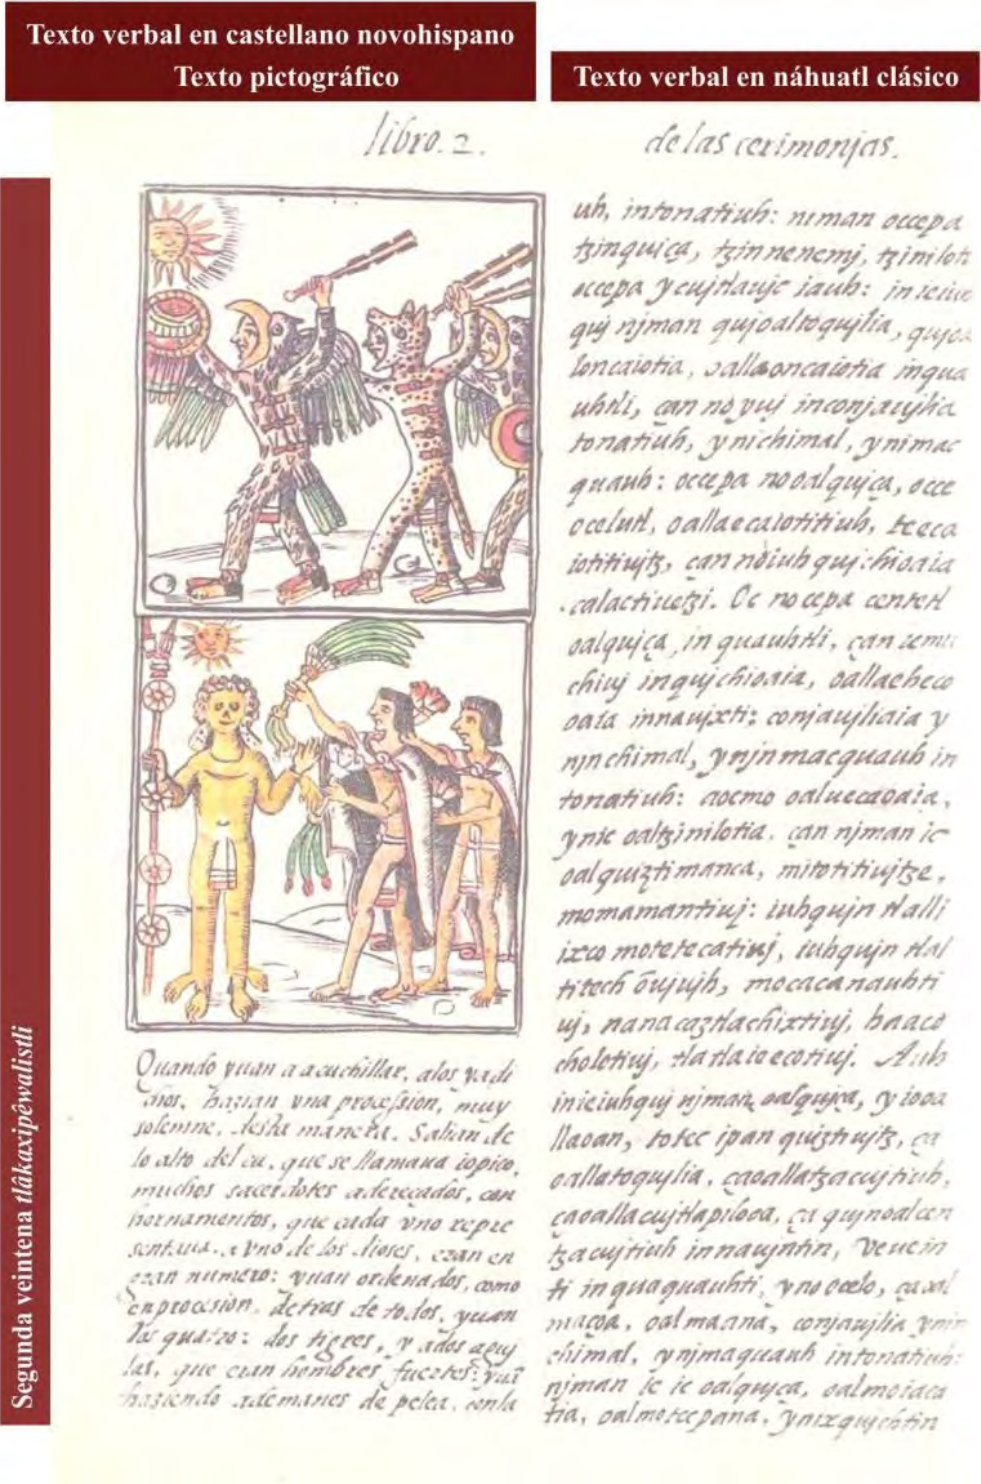 Texto verbal en castellano novohispano
Texto pictográfico
Texto verbal en náhuatl clásico
Segunda veintena tlâkaxipêwalistli
libro. 2.
de las cerimonjas.
Quando yuan a acuchillar, a los ya di
chos, hazian vna procession, muy
solemne, desta manera. Salian de
lo alto del cu, que se llamaua iopico,
muchos sacerdotes adereçados, con
hornamentos, que cada vno repre
sentaua, a vno de los dioses, eran en
gran numero: yuan ordenados, como
en procesion, detras de todos, yuan
los quatro: dos tigres, y ados aguj
las, que eran hombres fuertes: yuā
haziendo ademanes de pelea, con la
uh, intonatiuh: niman occepa
tzinquiça, tzinnenemj, tzinilot
occepa ycujtlaujc iauh: in iciuh
quj njman qujoaltoqujlia,
loncaiotia, oallaoncaiotia inqua
uhtli, çan no yuj inconjaujlia
tonatiuh, ynichimal, ynimac
quauh: occepa no oalqujça, occe
ocelutl, oallaecaiotitiuh, teeca
iotitiujtz, çan no iuh qujchioaia
calactiuetzi. Oc no cepa centetl
oalqujça, in quauhtli, çan
chiuj inqujchioaia, oallaeheco
oaia innaujxti: conjaujliaia y
njnchimal, ynjnmacquauh in
tonatiuh: aocmo oaluecaoaia,
ynic oaltzinilotia. çan njman ic
oalquiztimanca, mitotitiujtze,
momamantiuj: iuhqujn tlalli
ixco motetecatiuj, iuhqujn tlal
titech ōujujh, mocacanauhti
uj, nanacaztlachixtiuj, haaco
cholotiuj, tlatlaioecotiuj. Auh
iniciuhquj njman, oalqujça, yiooa
llaoan, totec ipan quiztiujtz, ça
oallatoqujlia, çaoallatzacujtiuh,
çaoallacujtlapilooa, ça qujnoalcen
tzacujtiuh innaujntin, Veuein
ti inquaquauhti, ynocelo, çaoal
maçoa, oalmaana, conjaujlia ynin
chimal, ynjmaquauh intonatiuh:
njman ic ic oalqujça, oalmoiaca
tia, oalmotecpana, ynixqujchtin